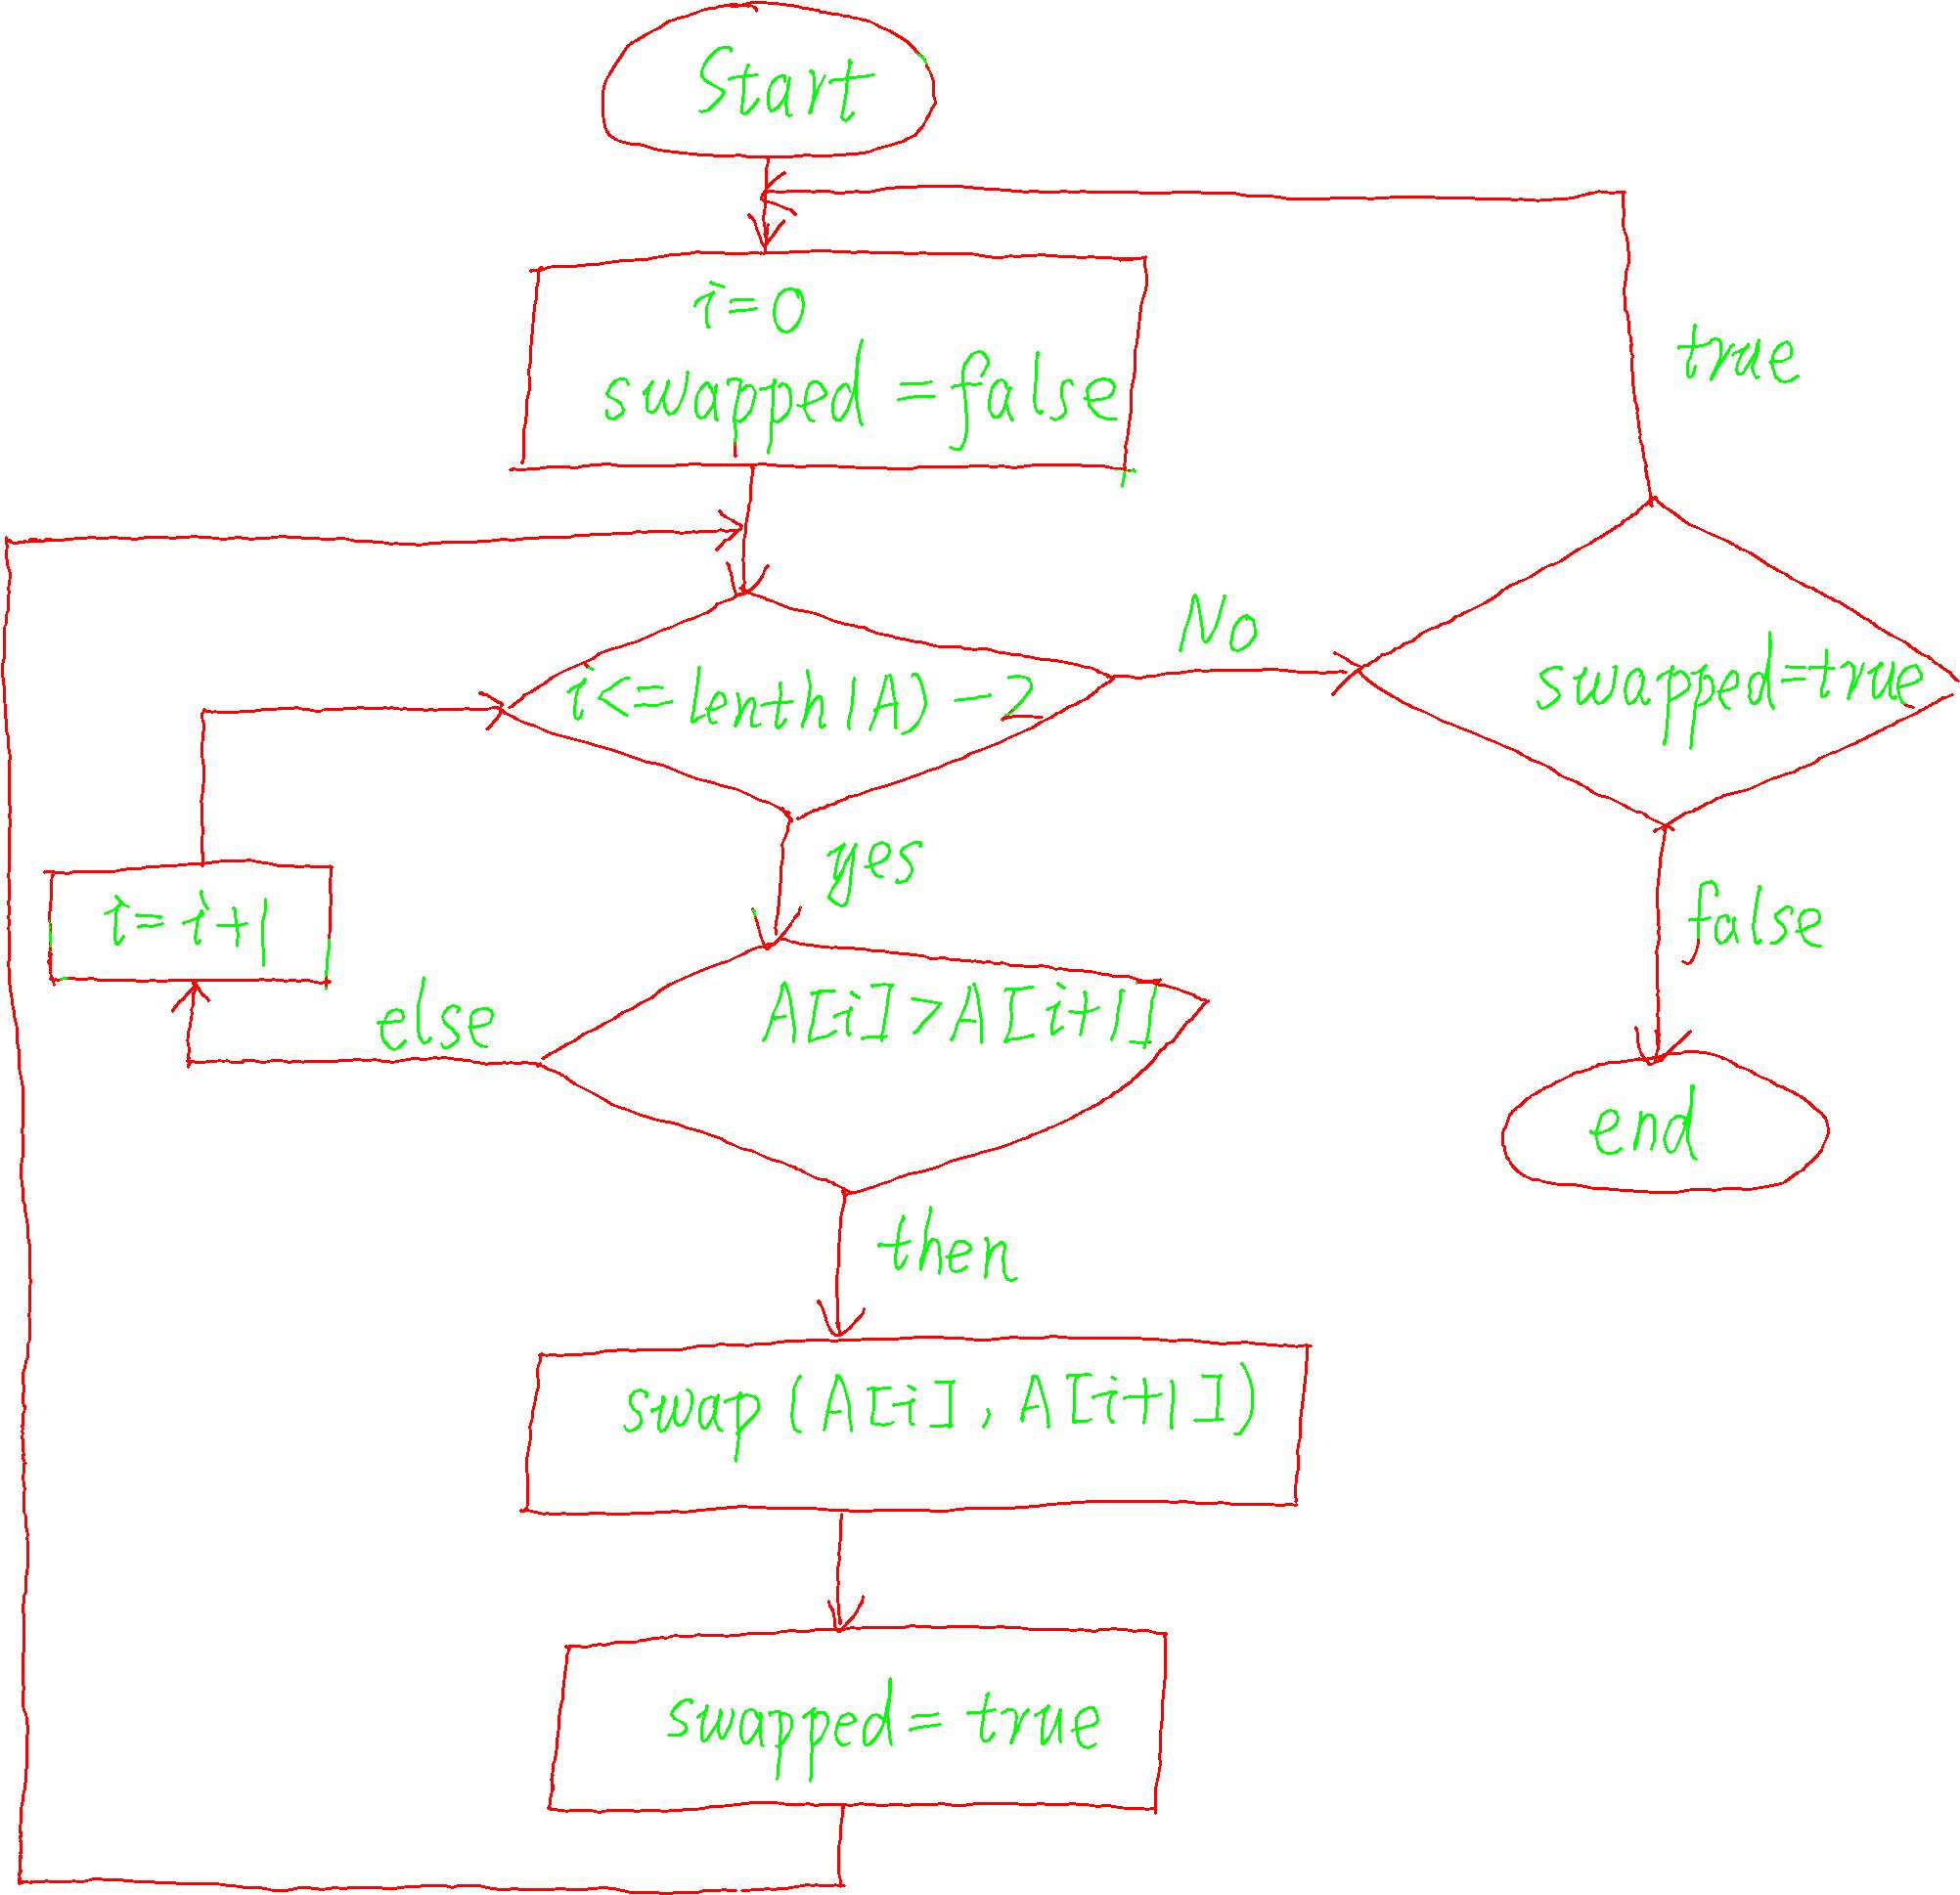 Start
i=0
swapped=false
true
No
i<=lenth(A)-2
swapped=true
yes
i=i+1
false
else
A[i]>A[i+1]
end
then
swap(A[i],A[i+1])
swapped=true